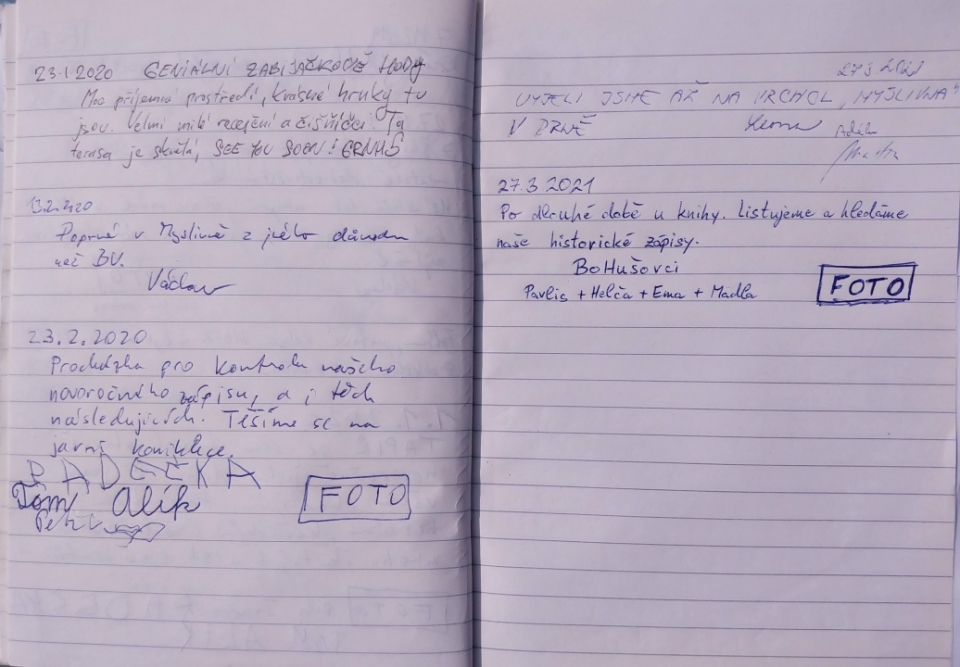 23.1.2020 GENIÁLNÍ ZABIJAČKOVÉ HODY
Moc příjemné prostředí, krásné hruky tu
jsou. Velmi milé recepční a čišníčci! Ta
terasa je skvělá, SEE YOU SOON!
13.2.2020
Poprvé v Myslivně z jiného důvodu
než BV.
Václav
23.2.2020
Procházka pro kontrolu našeho
novoročního zápisu, a i těch
následujících. Těšíme se na
jarní koniklece.
RADEČKA
Tom Alík
Petr
FOTO
27.3.2021
VYJELI JSME AŽ NA VRCHOL „MYSLIVNA"
V BRNĚ
27.3.2021
Po dlouhé době u knihy. Listujeme a hledáme
naše historické zápisy.
BoHušovci
Pavlis + Helča + Ema + Madla
FOTO